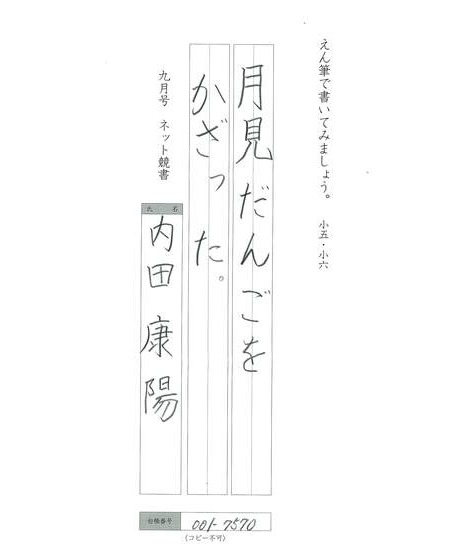 えん筆で書いてみましょう。 小五・小六
月見だんごを
かざった。
九月号 ネット競書
氏名
内田康陽
台帳番号
001-7570
(コピー不可)